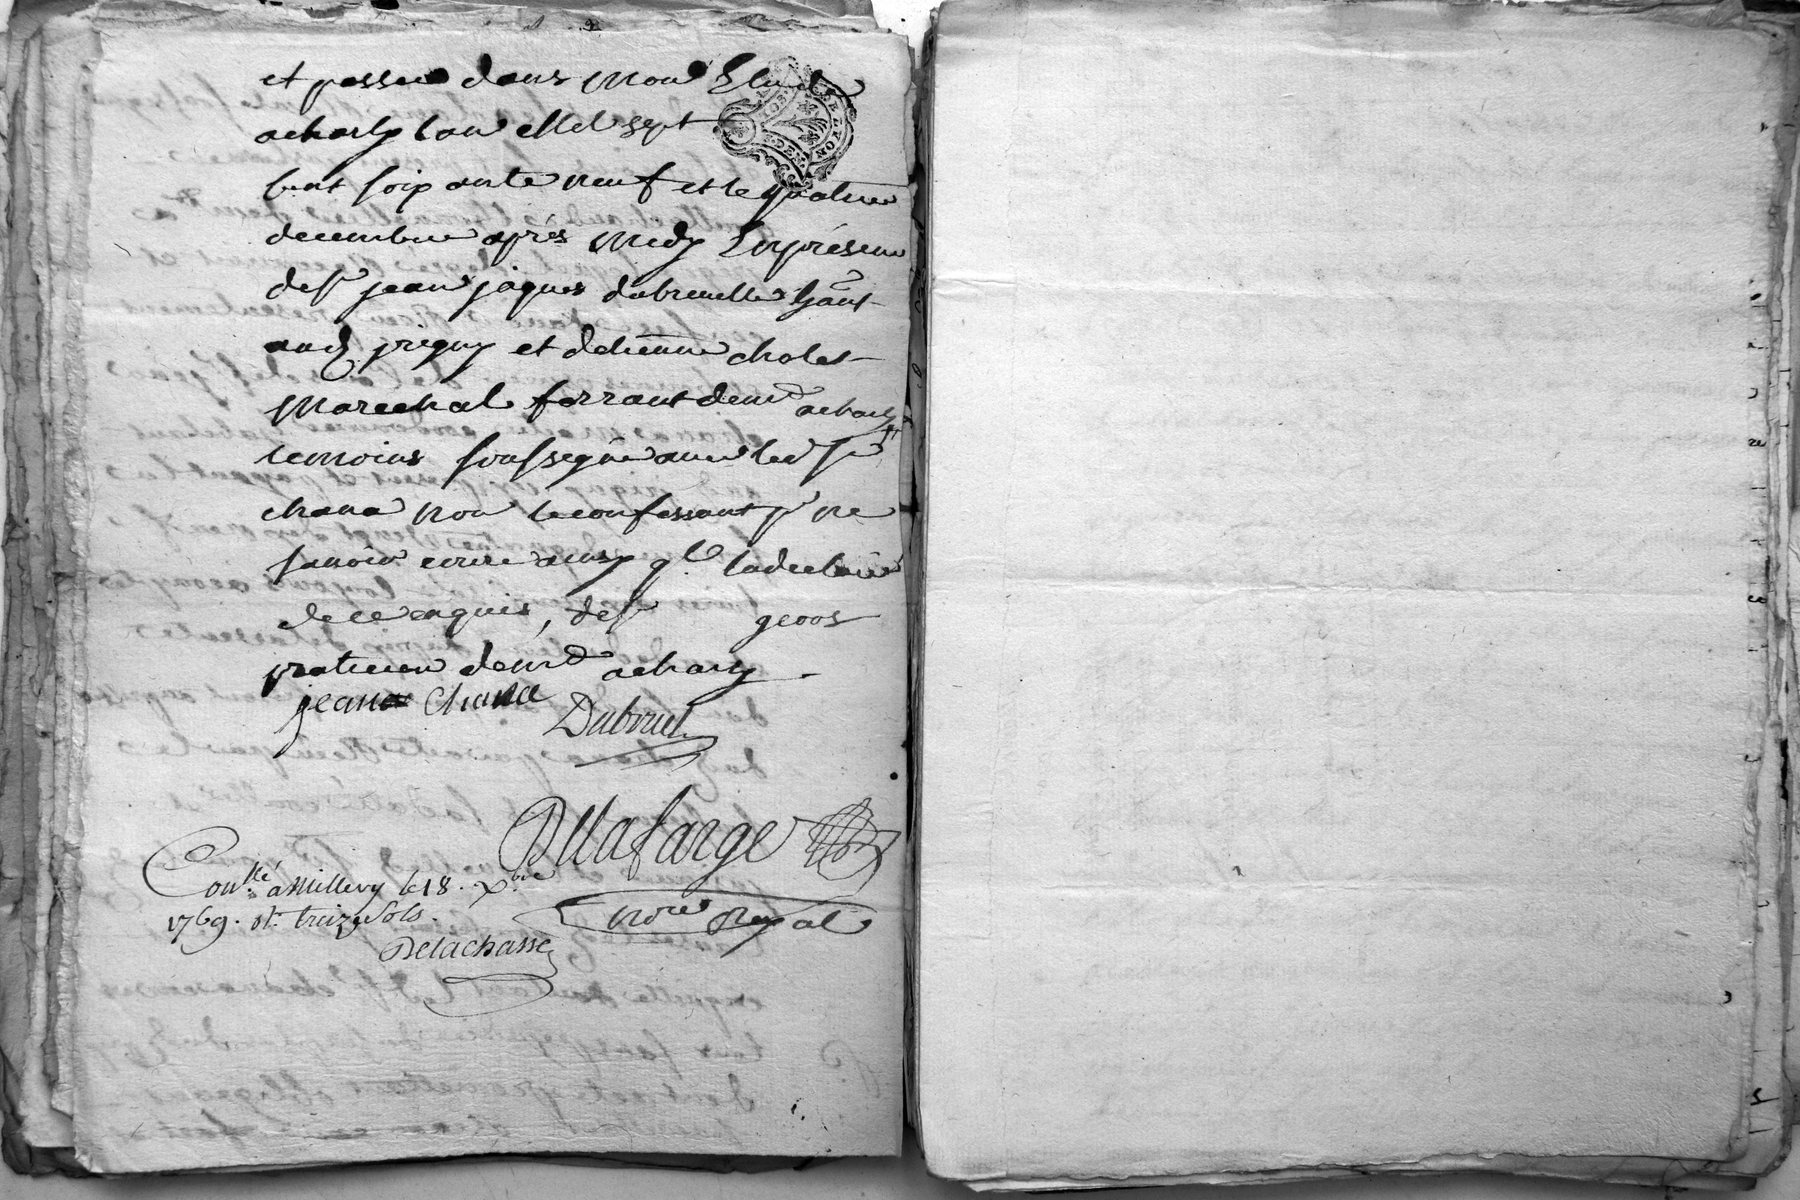 et passé dans mon Etude
a charly l'an Mil sept
cent soix ante neuf et le quatrieme
decembre après Midy En présence
de sr jean jaques dubreuille hant
aud prigny et d'etienne cholet
Marechal ferrant demt a charly
temoins soussigné avec led sr
chana non le confessant pr ne
savoir ecrire ainsy ql la declaré
de ce enquis, de sr geoos
praticien demt a charly.
jean Chana
Dubruel
Dellafarge
Nore Royal
Conllé a Millery le 18. xbre
1769. rt. treize sols.
Delachasse